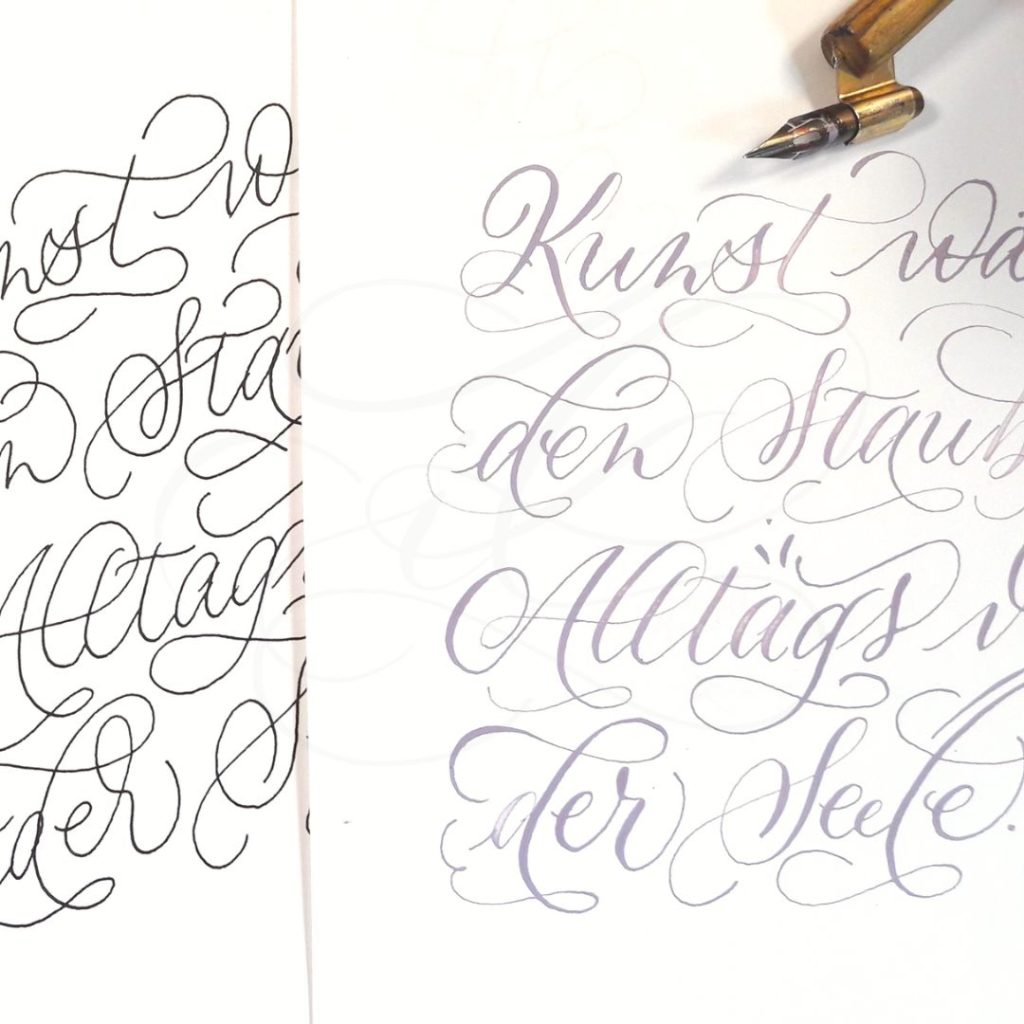 nst w
n Sta
Alltag
der S
Kunst wä
den Staub
Alltags v
der Seele.